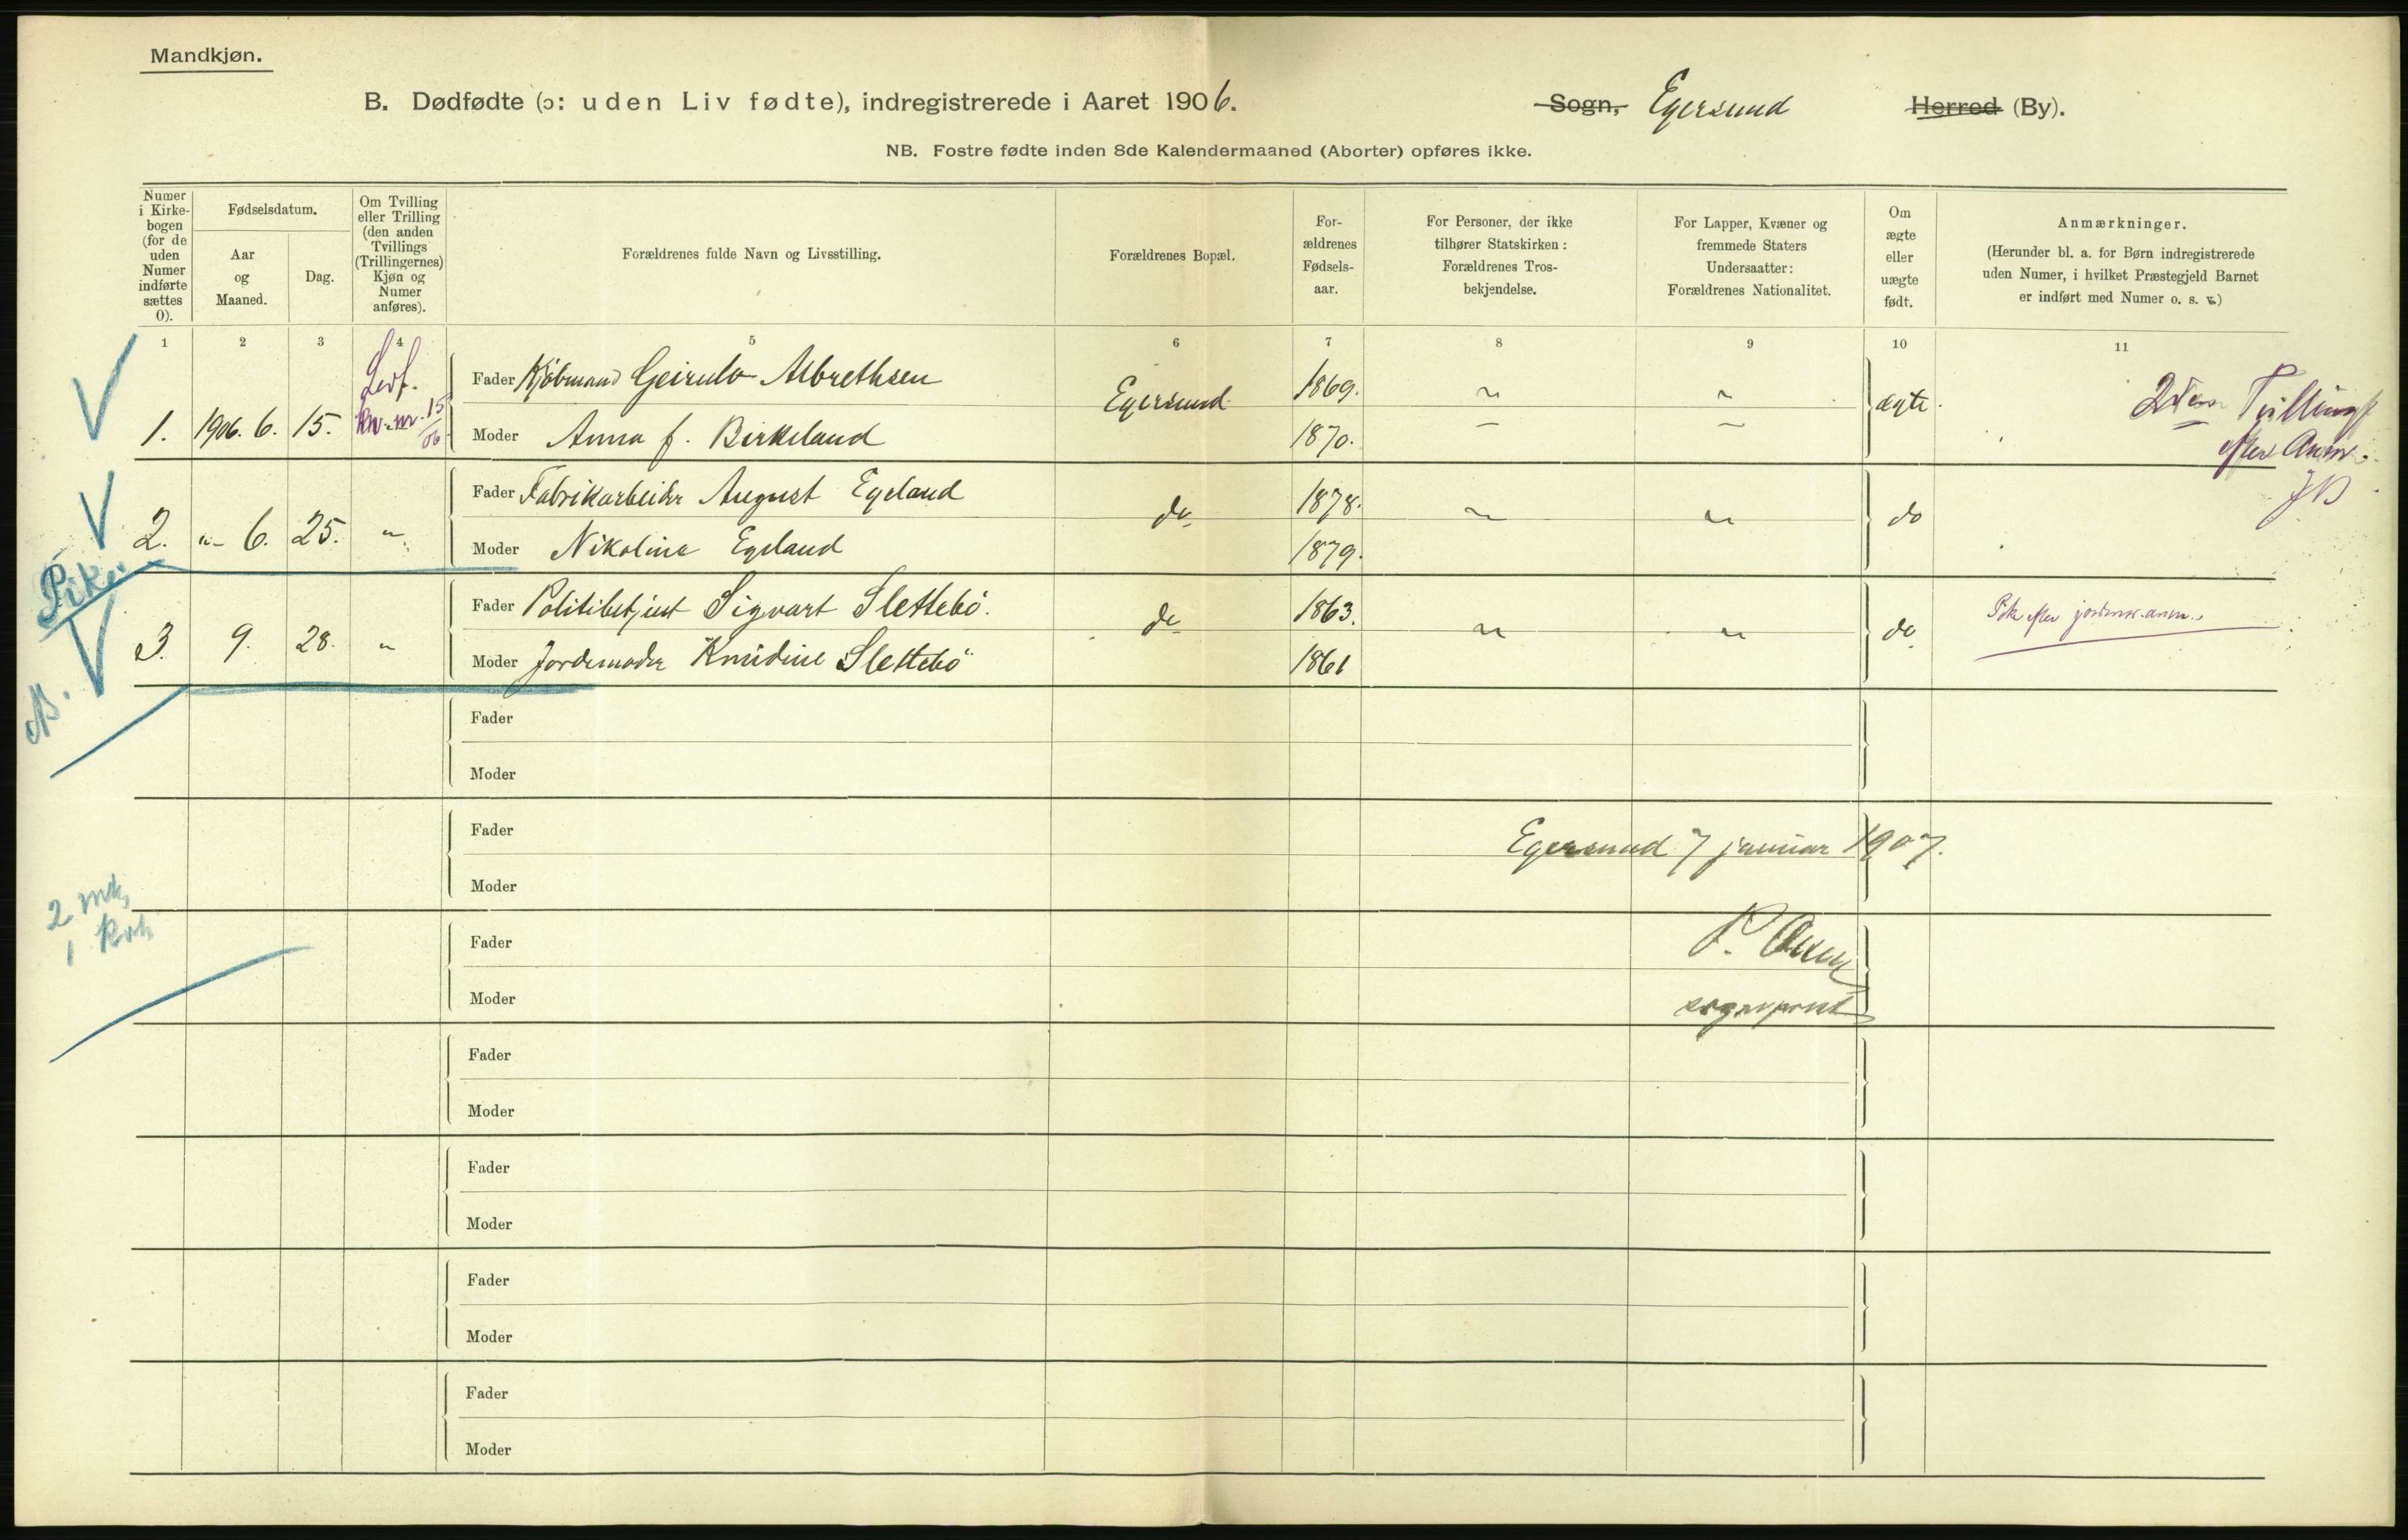 Mandkjøn.
B. Dødfødte (ɔ: uden Liv fødte), indregistrerede i Aaret 1906. Sogn, Egersund Herred (By).
NB. Fostre fødte inden 8de Kalendermaaned (Aborter) opføres ikke.
Numer i Kirkebogen (for de uden Numer indførte sættes 0).
Fødselsdatum.
Aar og Maaned.
Dag.
Om Tvilling eller Trilling (den anden Tvillings (Trillingernes) Kjøn og Numer anføres).
Forældrenes fulde Navn og Livsstilling.
Forældrenes Bopæl.
Forældrenes Fødselsaar.
For Personer, der ikke tilhører Statskirken: Forældrenes Trosbekjendelse.
For Lapper, Kvæner og fremmede Staters Undersaatter: Forældrenes Nationalitet.
Om ægte eller uægte født.
Anmærkninger.
(Herunder bl. a. for Børn indregistrerede uden Numer, i hvilket Præstegjeld Barnet er indført med Numer o. s. v.)
1 2 3 4 5 6 7 8 9 10 11
Levf.
Fader Kjøbmand Geirulv Albrethsen 1869. " "
1. 1906. 6. 15. Kv. nr. 15/06 Egersund ægte. 2den Tvilling
Moder Anna f. Birkeland 1870. — — efter Anm.
JB
Fader Fabrikarbeider August Egeland 1878.
2. "- 6. 25. " do " " do
Moder Nikoline Egeland 1879.
Pike
Fader Politibetjent Sigvart Slettebö. 1863. Pik efter jordmor. anm.
3. 9. 28. " do " " do
Moder Jordemoder Knudine Slettebö 1861
Fader
Moder
Fader
Egersund 7 januar 1907.
Moder
2 mk,
1 kvk
Fader
P.
Moder
sogneprest
Fader
Moder
Fader
Moder
Fader
Moder
Fader
Moder